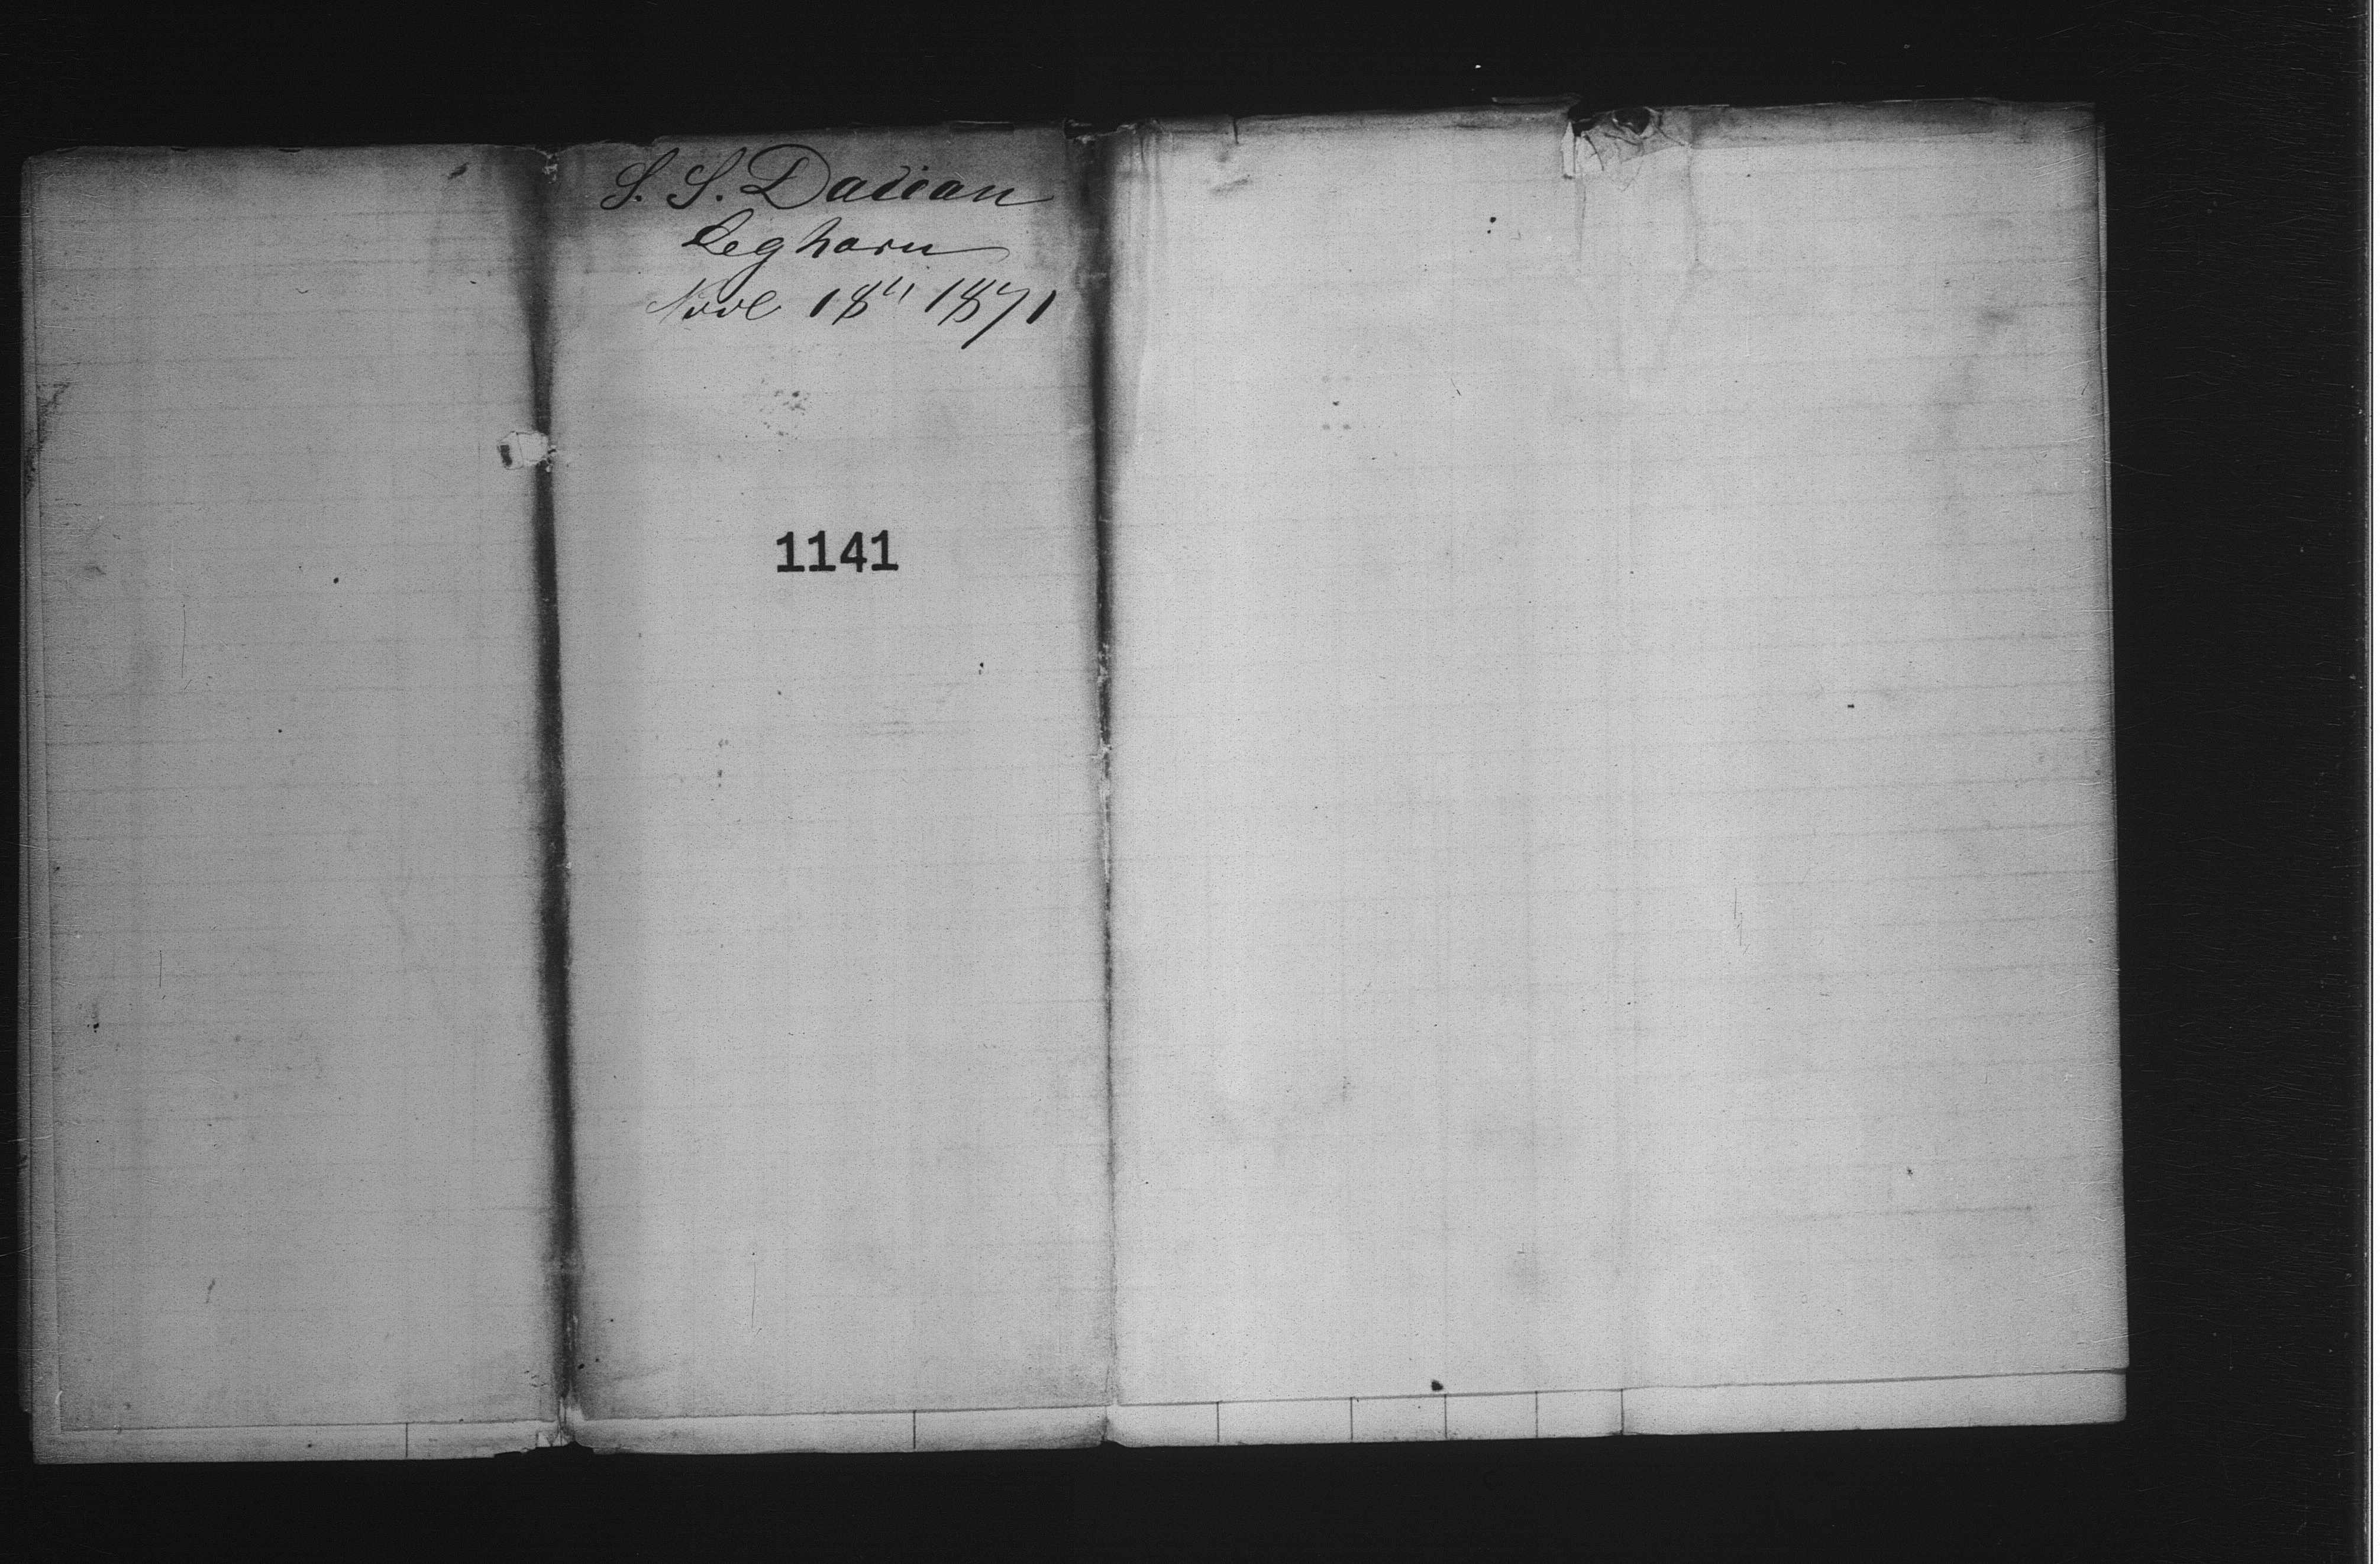 S. S. Dacian
Leghorn
Nov 18" 1871
1141